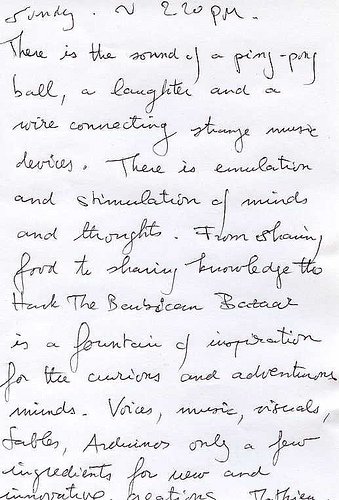 Sunday. ~ 2 20 pm.
There is the sound of a ping-pong
ball, a laughter and a
wire connecting strange music
devices. There is emulation
and stimulation of minds
and thoughts. From sharing
food to sharing knowledge the
Hack The Barbican Bazaar
is a fountain of inspiration
for the curious and adventurous
minds. Voices, music, visuals,
fables, Arduinos only a few
ingredients for new and
innovative creations.